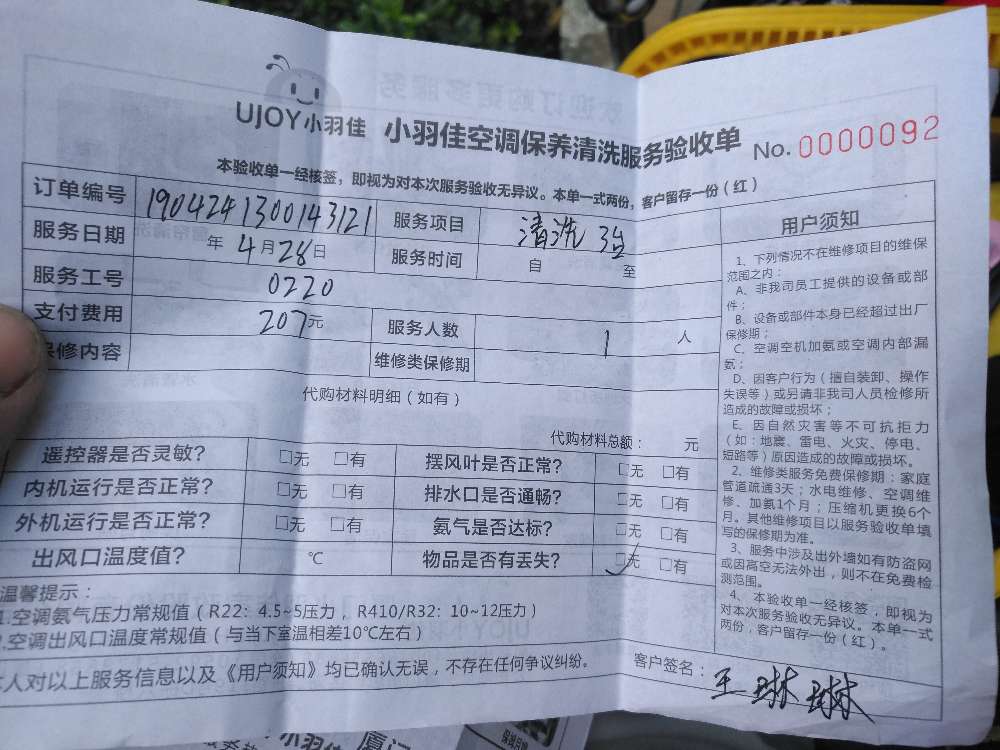 UJOY小羽佳 小羽佳空调保养清洗服务验收单 No. 0000092
本验收单一经核签，即视为对本次服务验收无异议。本单一式两份，客户留存一份（红）
订单编号 1904241300143121 服务项目 清洗 3台
服务日期 年 4月28日 服务时间 自 至
服务工号 0220
支付费用 207元 服务人数 1 人
保修内容 维修类保修期
代购材料明细（如有）
代购材料总额： 元
遥控器是否灵敏？ □无 □有 摆风叶是否正常？ □无 □有
内机运行是否正常？ □无 □有 排水口是否通畅？ □无 □有
外机运行是否正常？ □无 □有 氨气是否达标？ □无 □有
出风口温度值？ ℃ 物品是否有丢失？ □无 □有
温馨提示：
1.空调氨气压力常规值（R22：4.5~5压力，R410/R32：10~12压力）
2.空调出风口温度常规值（与当下室温相差10℃左右）
本人对以上服务信息以及《用户须知》均已确认无误，不存在任何争议纠纷。
客户签名：王琳琳
用户须知
1、下列情况不在维修项目的维保
范围之内：
A、非我司员工提供的设备或部
件；
B、设备或部件本身已经超过出厂
保修期；
C、空调空机加氨或空调内部漏
氨；
D、因客户行为（擅自装卸、操作
失误等）或另请非我司人员检修所
造成的故障或损坏；
E、因自然灾害等不可抗拒力
（如：地震、雷电、火灾、停电、
短路等）原因造成的故障或损坏。
2、维修类服务免费保修期：家庭
管道疏通3天；水电维修、空调维
修、加氨1个月；压缩机更换6个
月。其他维修项目以服务验收单填
写的保修期为准。
3、服务中涉及出外墙如有防盗网
或因高空无法外出，则不在免费检
测范围。
4、本验收单一经核签，即视为
对本次服务验收无异议。本单一式
两份，客户留存一份（红）。
小羽佳 厦门